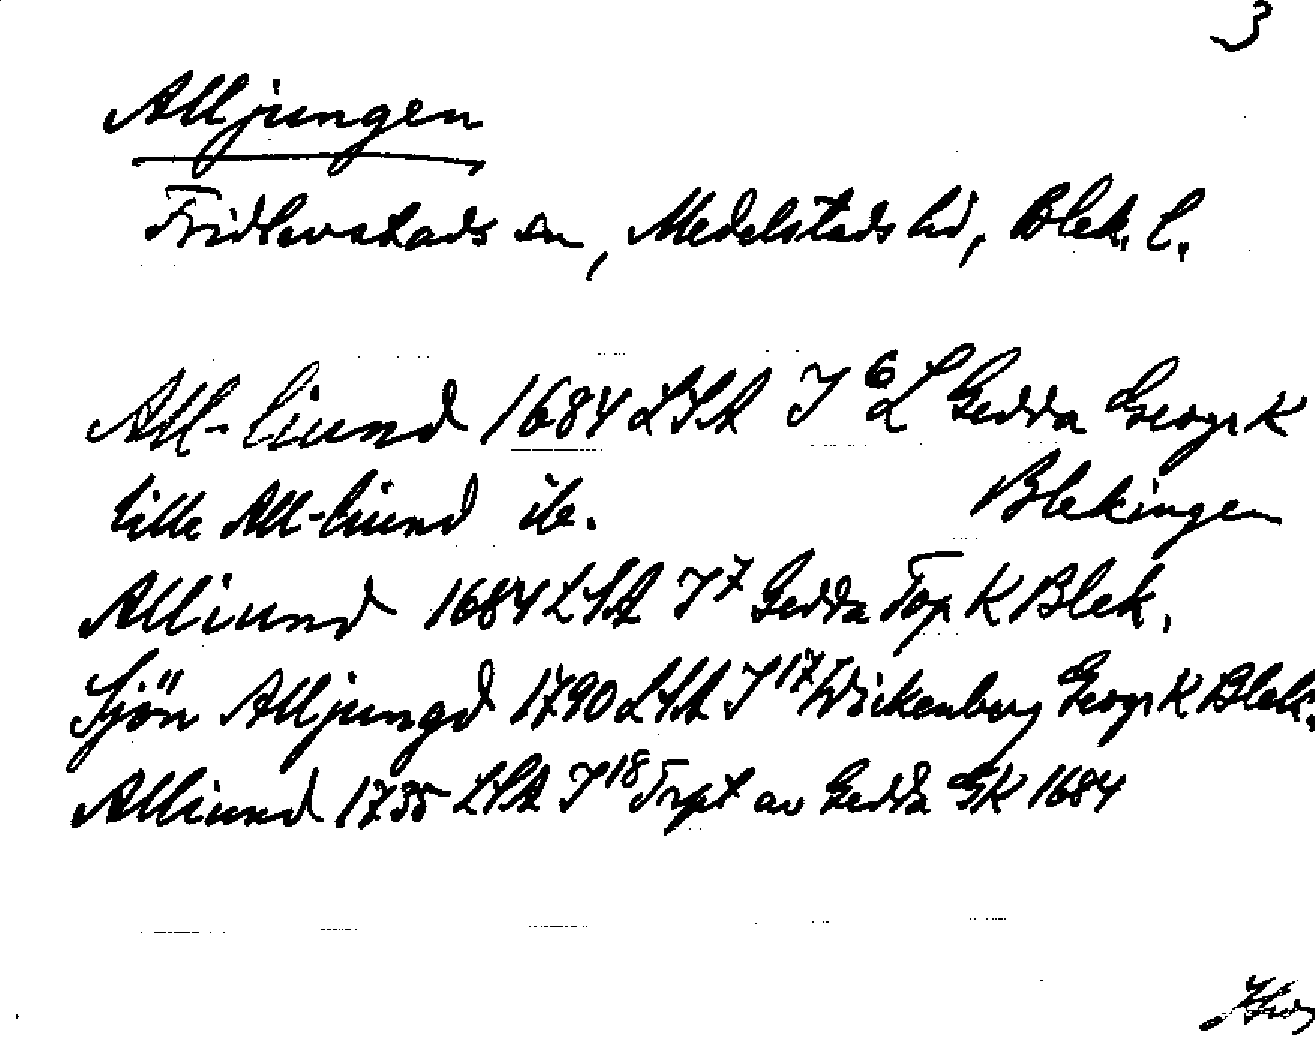 3
Alljungen
Fridlevstads sn, Medelstads hd, Blek. l.
All-liund 1684 LSA I 6 L Gedda Geogr K
Lille All-liund ib. Blekingen
Alliund 1684 LSA I 7 Gedda Top K Blek.
Sjön Alljungd 1790 LSA I 17 Wickenberg Geogr K Blek.
Alliund 1735 LSA I 18 Trpt av Gedda GK 1684